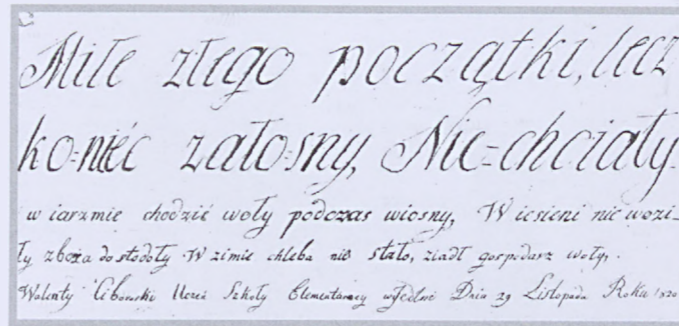 Miłe złego początki, lecz
ko=niec załosny, Nie=chciały
w iarzmie chodzić woły podczas wiosny, W iesieni nie wozi_
ły zboża do stodoły. W zimie chleba nie stało, ziadł gospodarz woły,.
Walenty Uczeń Szkoły Elementarney Dnia 29 Listopada Roku 1820